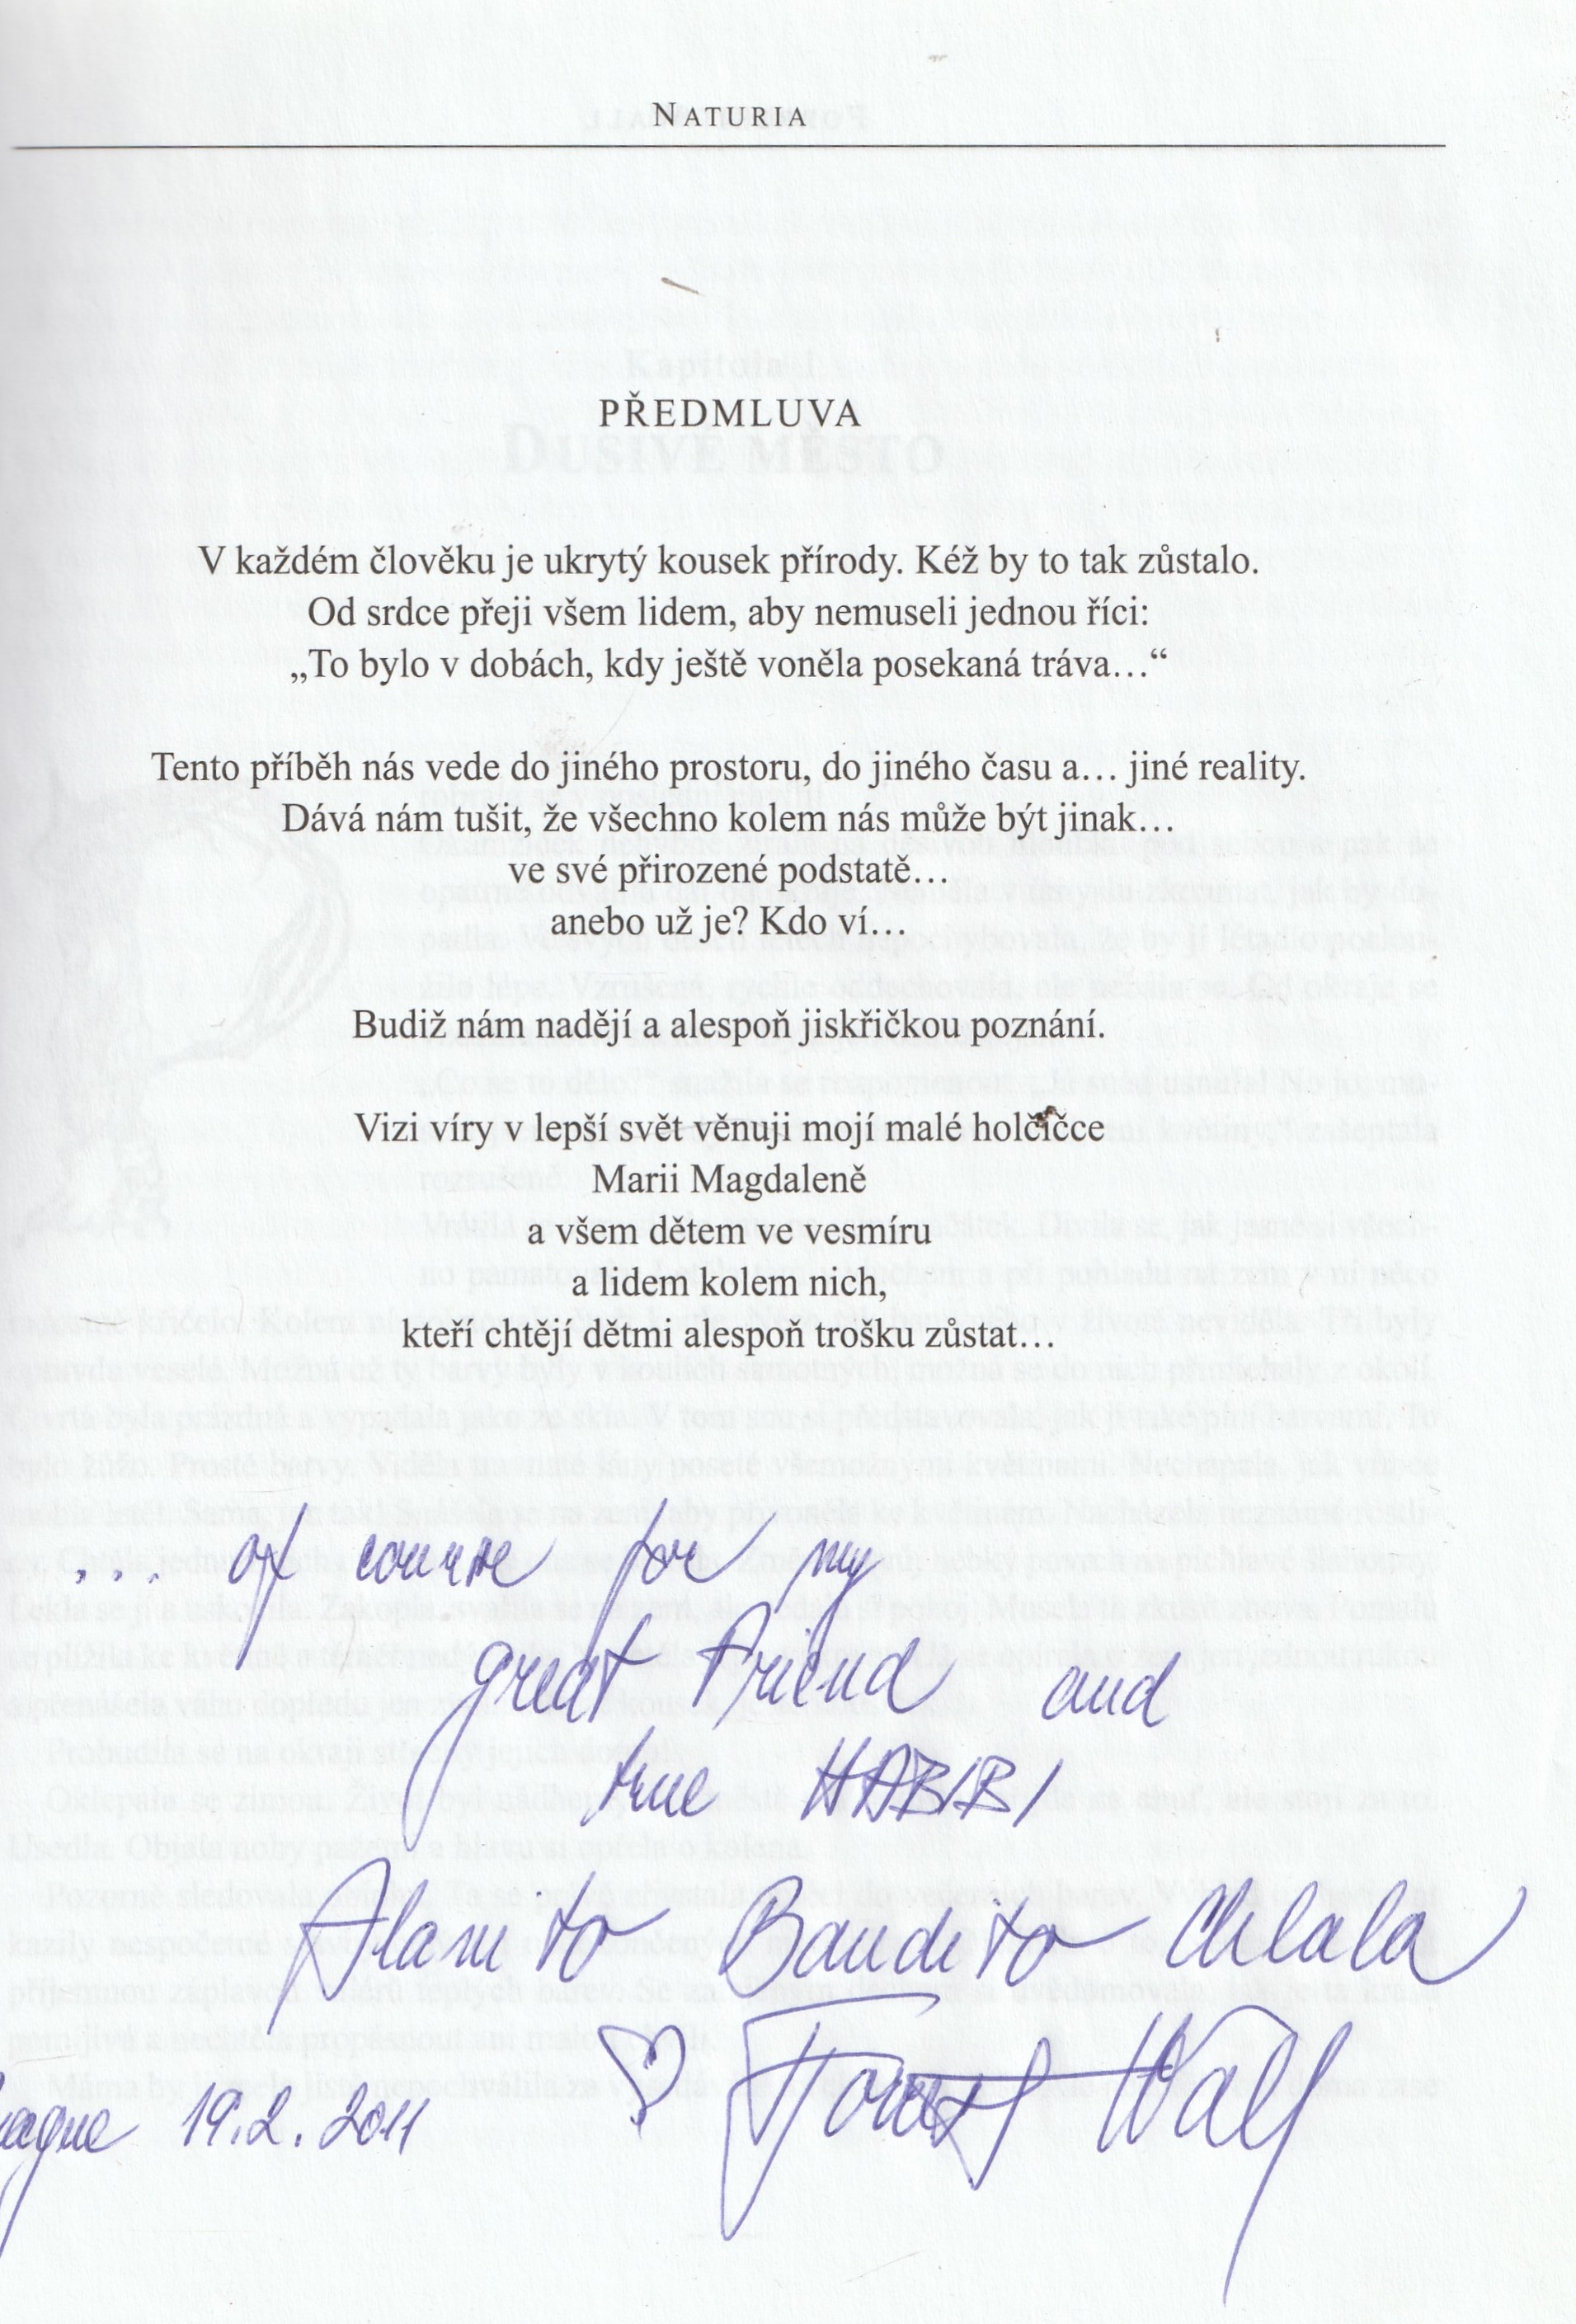 NATURIA
PŘEDMLUVA
V každém člověku je ukrytý kousek přírody. Kéž by to tak zůstalo.
Od srdce přeji všem lidem, aby nemuseli jednou říci:
„To bylo v dobách, kdy ještě voněla posekaná tráva…“
Tento příběh nás vede do jiného prostoru, do jiného času a… jiné reality.
Dává nám tušit, že všechno kolem nás může být jinak…
ve své přirozené podstatě…
anebo už je? Kdo ví…
Budiž nám nadějí a alespoň jiskřičkou poznání.
Vizi víry v lepší svět věnuji mojí malé holčičce
Marii Magdaleně
a všem dětem ve vesmíru
a lidem kolem nich,
kteří chtějí dětmi alespoň trošku zůstat…
... of course for my
great Friend and
true HABIBI
Alamito Bandito Chlala
Forest Wall
19.2.2011